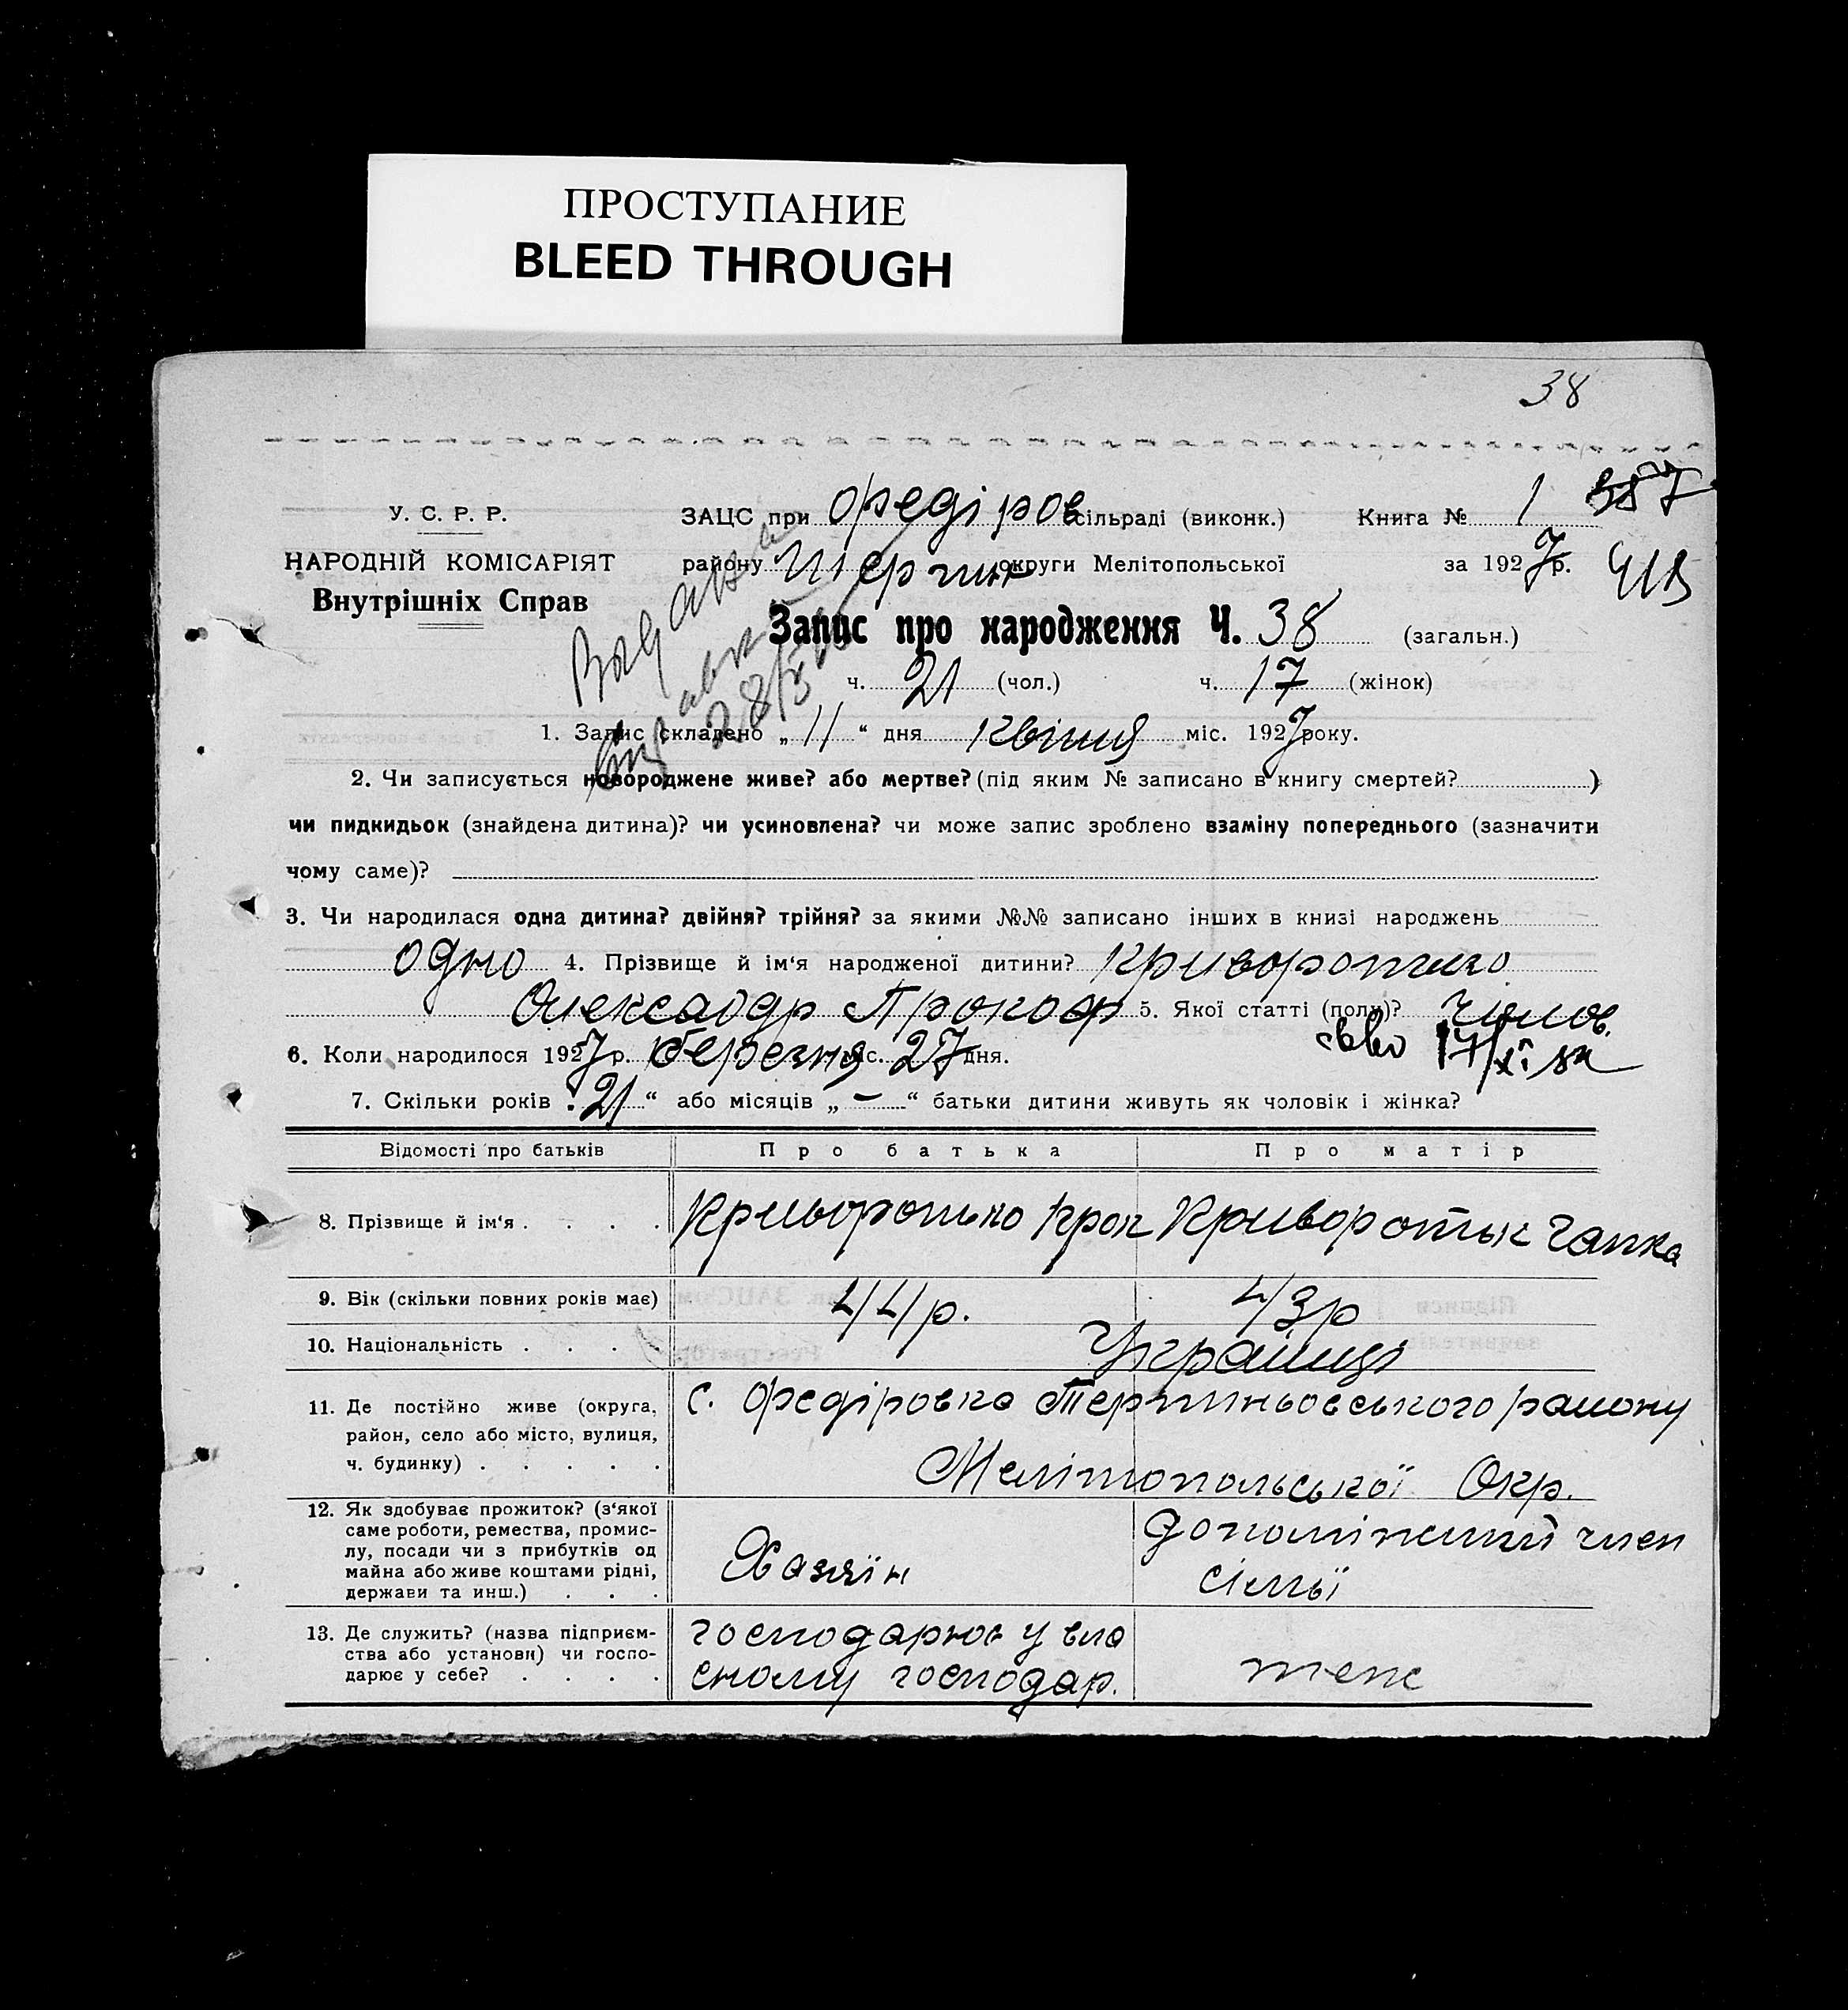 ПРОСТУПАНИЕ
BLEED THROUGH
38
У. С. Р. Р.
НАРОДНІЙ КОМІСАРІЯТ
Внутрішніх Справ
ЗАЦС при Федіров сільраді (виконк.) Книга № 1
району Терпин округи Мелітопольської за 1927 р.
Запис про народження Ч. 38 (загальн.)
ч. 21 (чол.) ч. 17 (жінок)
1. Запис складено „ 11 “ дня квітня міс. 1927 року.
2. Чи записується новороджене живе? або мертве? (під яким № записано в книгу смертей? )
чи пидкидьок (знайдена дитина)? чи усиновлена? чи може запис зроблено взаміну попереднього (зазначити
чому саме)?
3. Чи народилася одна дитина? двійня? трійня? за якими №№ записано інших в книзі народжень
одно 4. Прізвище й ім‘я народженої дитини? Криворотько
Олександр Прокоф 5. Якої статті (полу)? чолов.
6. Коли народилося 1927 р. березня міс. 27 дня.
7. Скільки років „ 21 “ або місяців „ — “ батьки дитини живуть як чоловік і жінка?
Відомості про батьків Про батька Про матір
8. Прізвище й ім‘я . . . . Криворотько Прок Криворотьк Гапка
9. Вік (скільки повних років має) 44 р. 43 р
10. Національність . . . . Українці
11. Де постійно живе (округа, район, село або місто, вулиця, ч. будинку) . . . . . с. Федіровка Терпиньовського району
Мелітопольської Окр.
12. Як здобуває прожиток? (з‘якої саме роботи, ремества, промислу, посади чи з прибутків од майна або живе коштами рідні, держави та инш.) . . . Хазяїн допоміжний член
сімьї
13. Де служить? (назва підприємства або установи) чи господарює у себе? . . . . господарює у вла
сному господар. теж